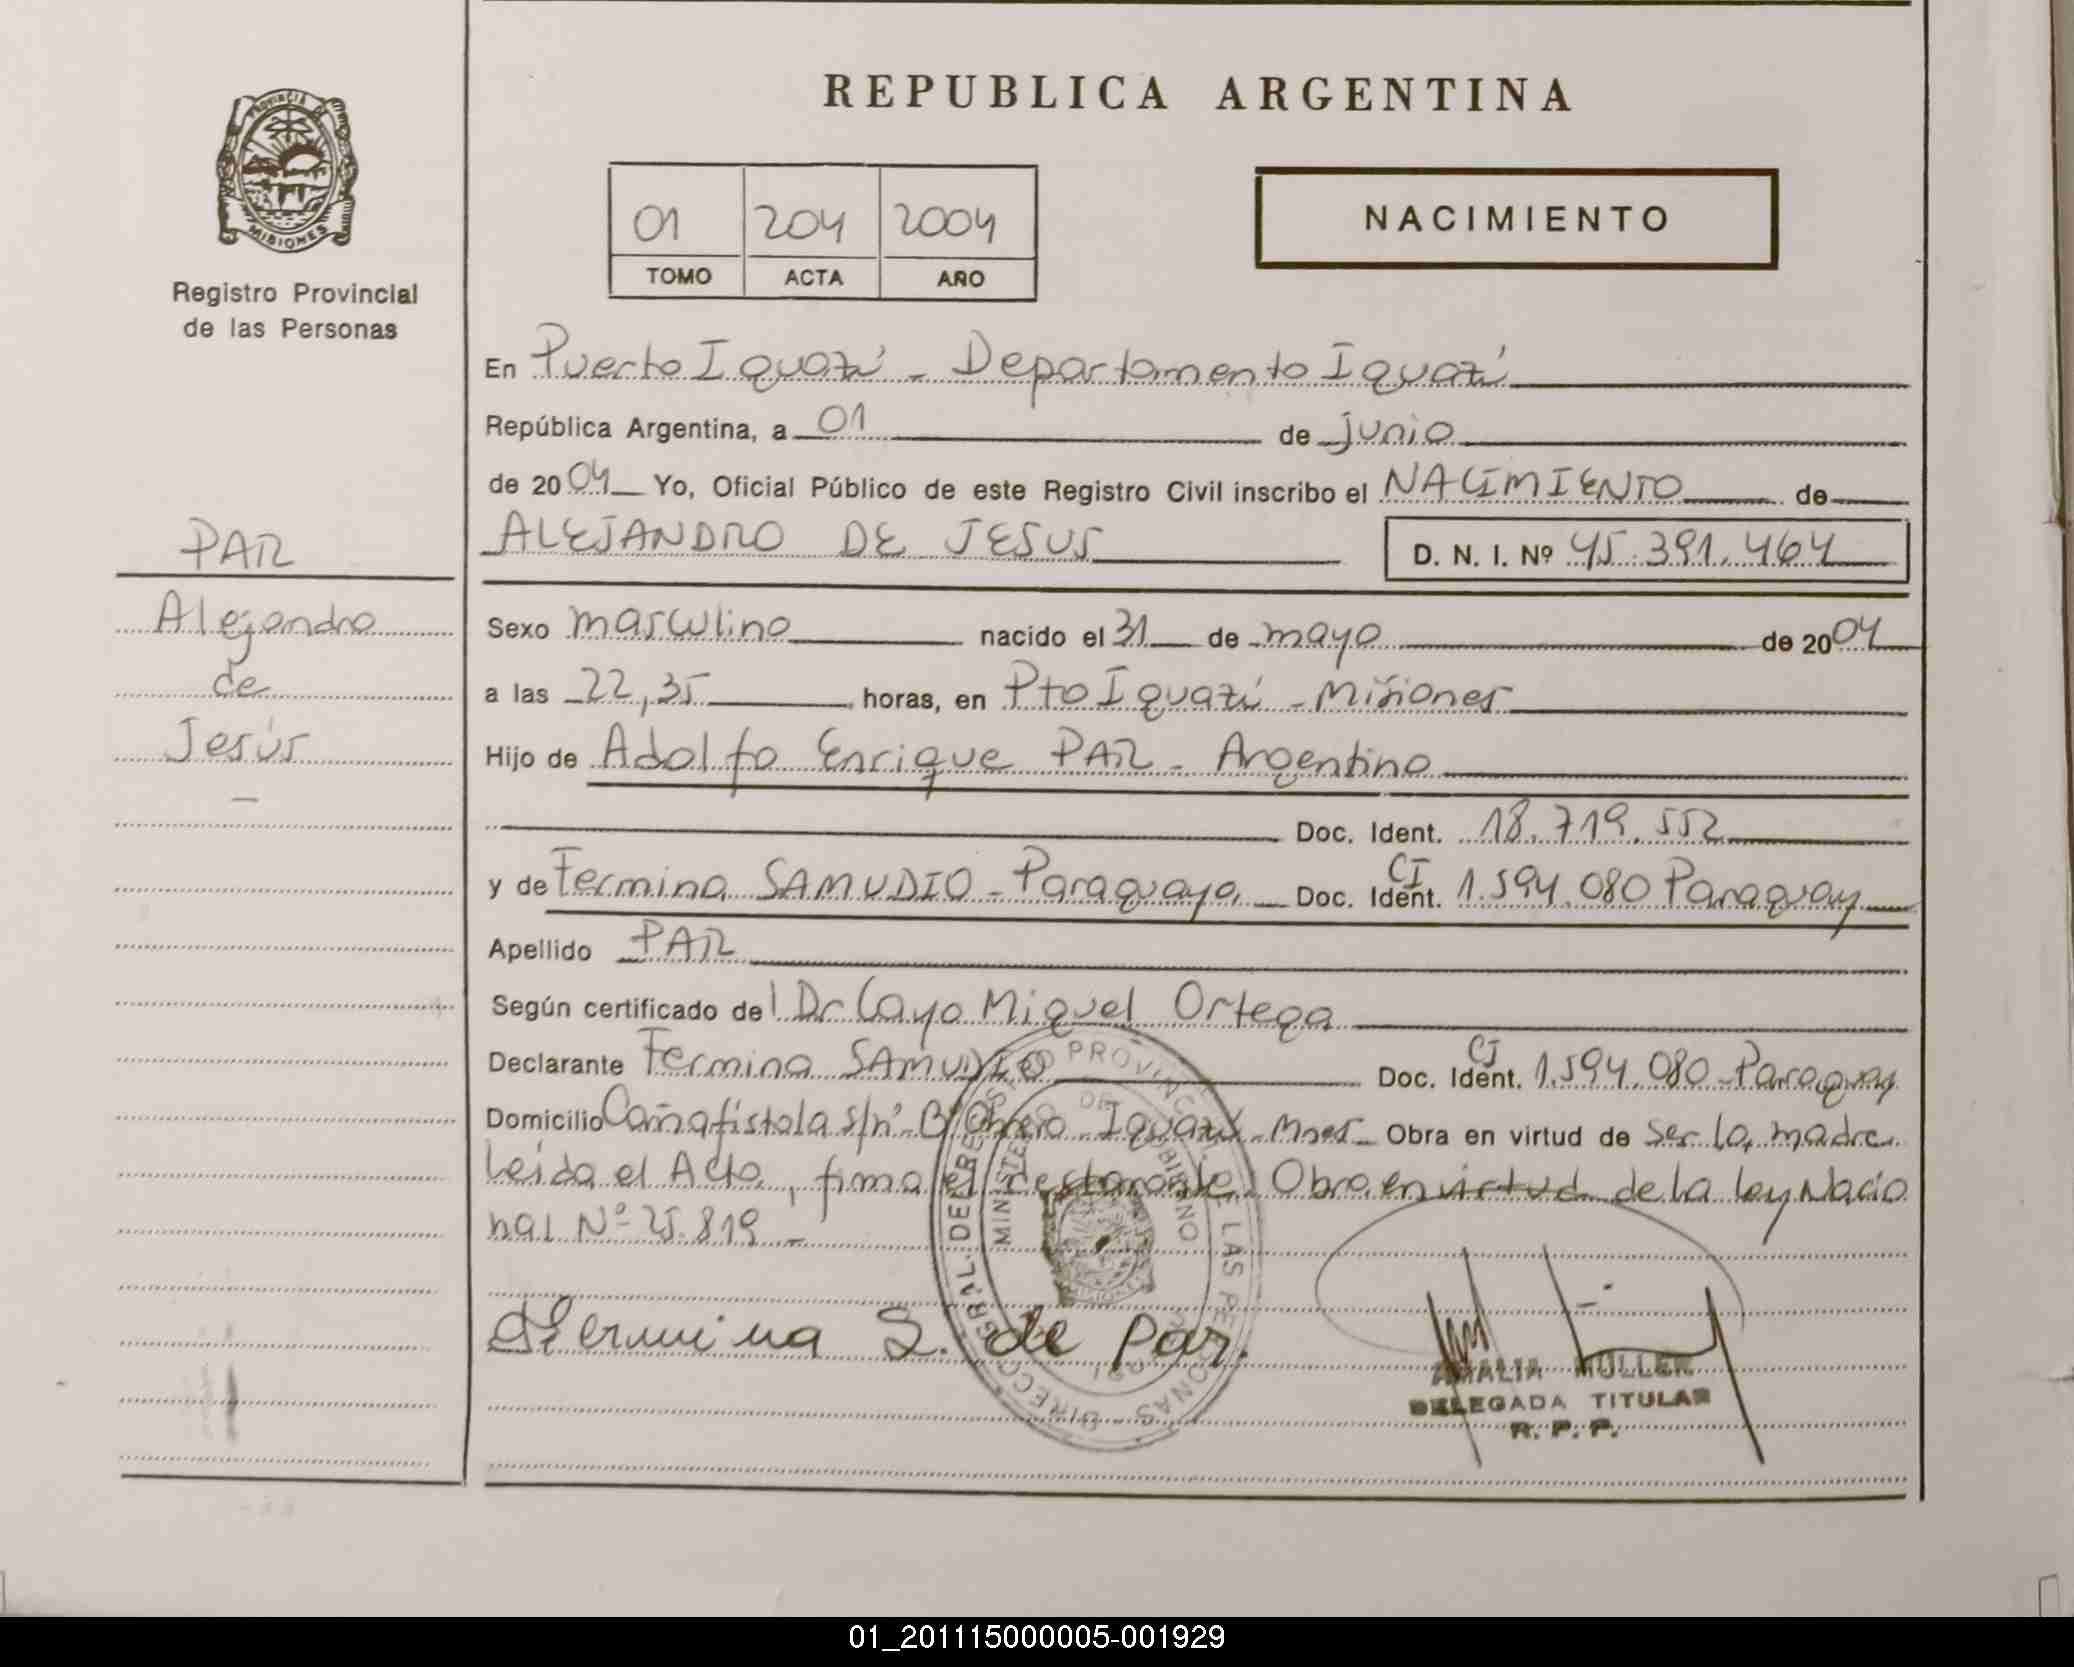 REPUBLICA ARGENTINA
PROVINCIA DE
MISIONES
Registro Provincial
de las Personas
01 204 2004
TOMO ACTA AÑO
NACIMIENTO
En Puerto Iguazú - Departamento Iguazú
República Argentina, a 01 de junio
de 2004 Yo, Oficial Público de este Registro Civil inscribo el NACIMIENTO de
ALEJANDRO DE JESUS
D. N. I. Nº 45.391.464
PAR
Alejandro
de
Jesús
-
Sexo masculino nacido el 31 de mayo de 2004
a las 22,35 horas, en Pto Iguazú - Misiones
Hijo de Adolfo Enrique PAR - Argentino
Doc. Ident. 18.719.552
y de Fermina SAMUDIO - Paraguaya Doc. Ident. CI 1.594.080 Paraguay
Apellido PAR
Según certificado del Dr Cayo Miguel Ortega
Declarante Fermina SAMUDIO Doc. Ident. CI 1.594.080 - Paraguay
Domicilio Cañafistola s/nº Bº Obrero Iguazú - Mnes - Obra en virtud de ser la madre
Leida el Acta, firma el declarante. Obra en virtud de la ley Nacio
nal Nº 25.819 -
Fermina S. de Par.
DIRECC. GRAL. DEL REGISTRO PROVINCIAL DE LAS PERSONAS
MINISTERIO DE GOBIERNO
AMALIA MULLER
DELEGADA TITULAR
R. P. P.
01_201115000005-001929